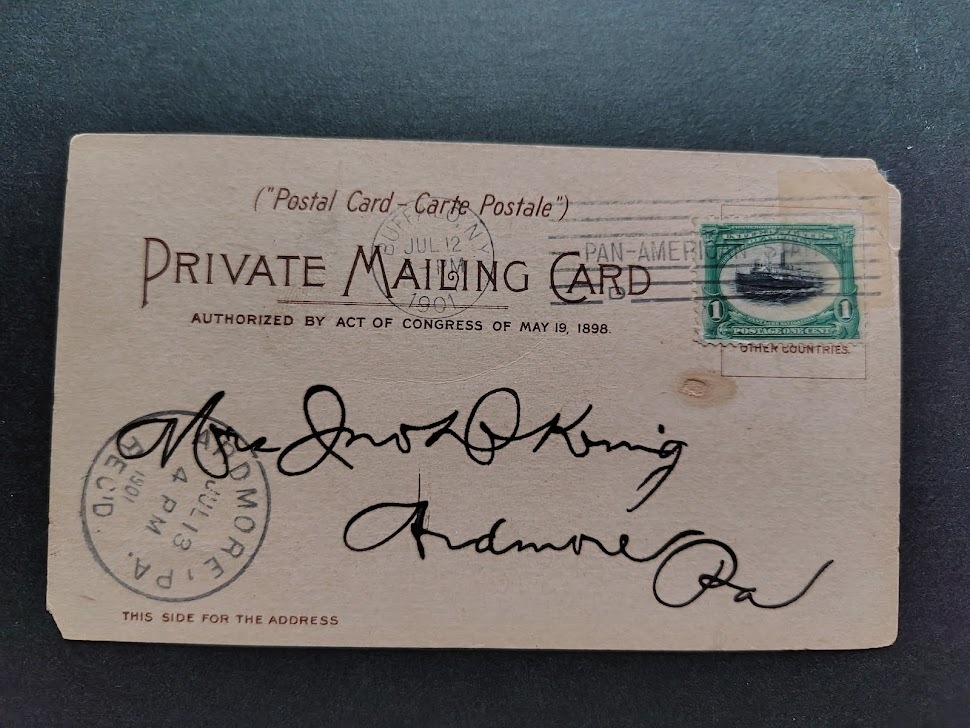 ("Postal Card – Carte Postale")
PRIVATE MAILING CARD
AUTHORIZED BY ACT OF CONGRESS OF MAY 19, 1898.
BUFFALO, N.Y.
JUL 12
PM
1901
PAN-AMERICAN
1 1
POSTAGE ONE CENT
OTHER COUNTRIES.
Mrs Jno König
Ardmore Pa
ARDMORE, PA.
JUL 13
4 PM
1901
REC'D.
THIS SIDE FOR THE ADDRESS